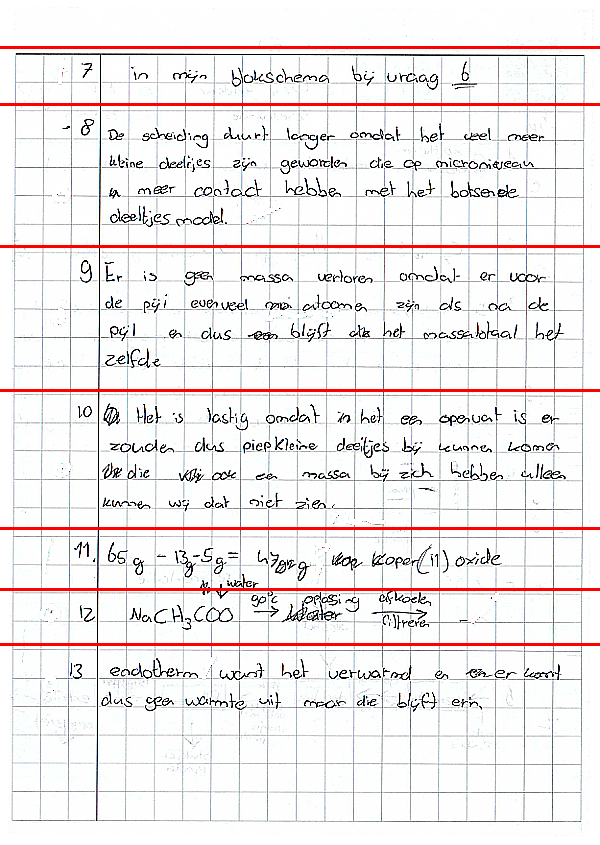 7 in mijn blokschema bij vraag 6
- 8 De scheiding duurt langer omdat het veel meer
kleine deeltjes zijn geworden die op microniveau
meer contact hebben met het botsende
deeltjes model.
9 Er is geen massa verloren omdat er voor
de pijl evenveel atoomen zijn als na de
pijl en dus blijft het massatotaal het
zelfde
10 Het is lastig omdat in het een open vat is er
zouden dus piepkleine deeltjes bij kunnen komen
die ook een massa bij zich hebben alleen
kunnen wij dat niet zien.
11. 65g - 13g - 5g = 47g koper(II) oxide
water
90°C oplossing afkoelen
12 NaCH3COO → → filtreren
13 endotherm want het verwarmd en er komt
dus geen warmte uit maar die blijft erin.